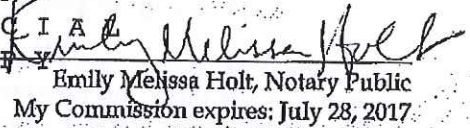 C I A L
Emily Melissa Holt
Emily Melissa Holt, Notary Public
My Commission expires: July 28, 2017